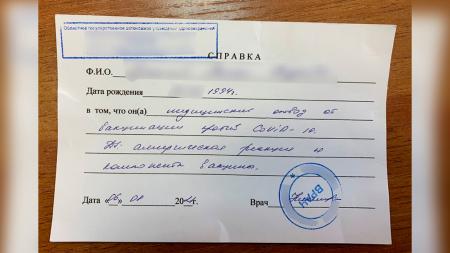 Областное государственное автономное учреждение здравоохранения
СПРАВКА
Ф.И.О.
Дата рождения 1994г.
в том, что он(а) медицинский отвод от
вакцинации против Covid-19.
аллергическая реакция
компонента вакцины.
Дата « » 20 г. Врач
ВРАЧ